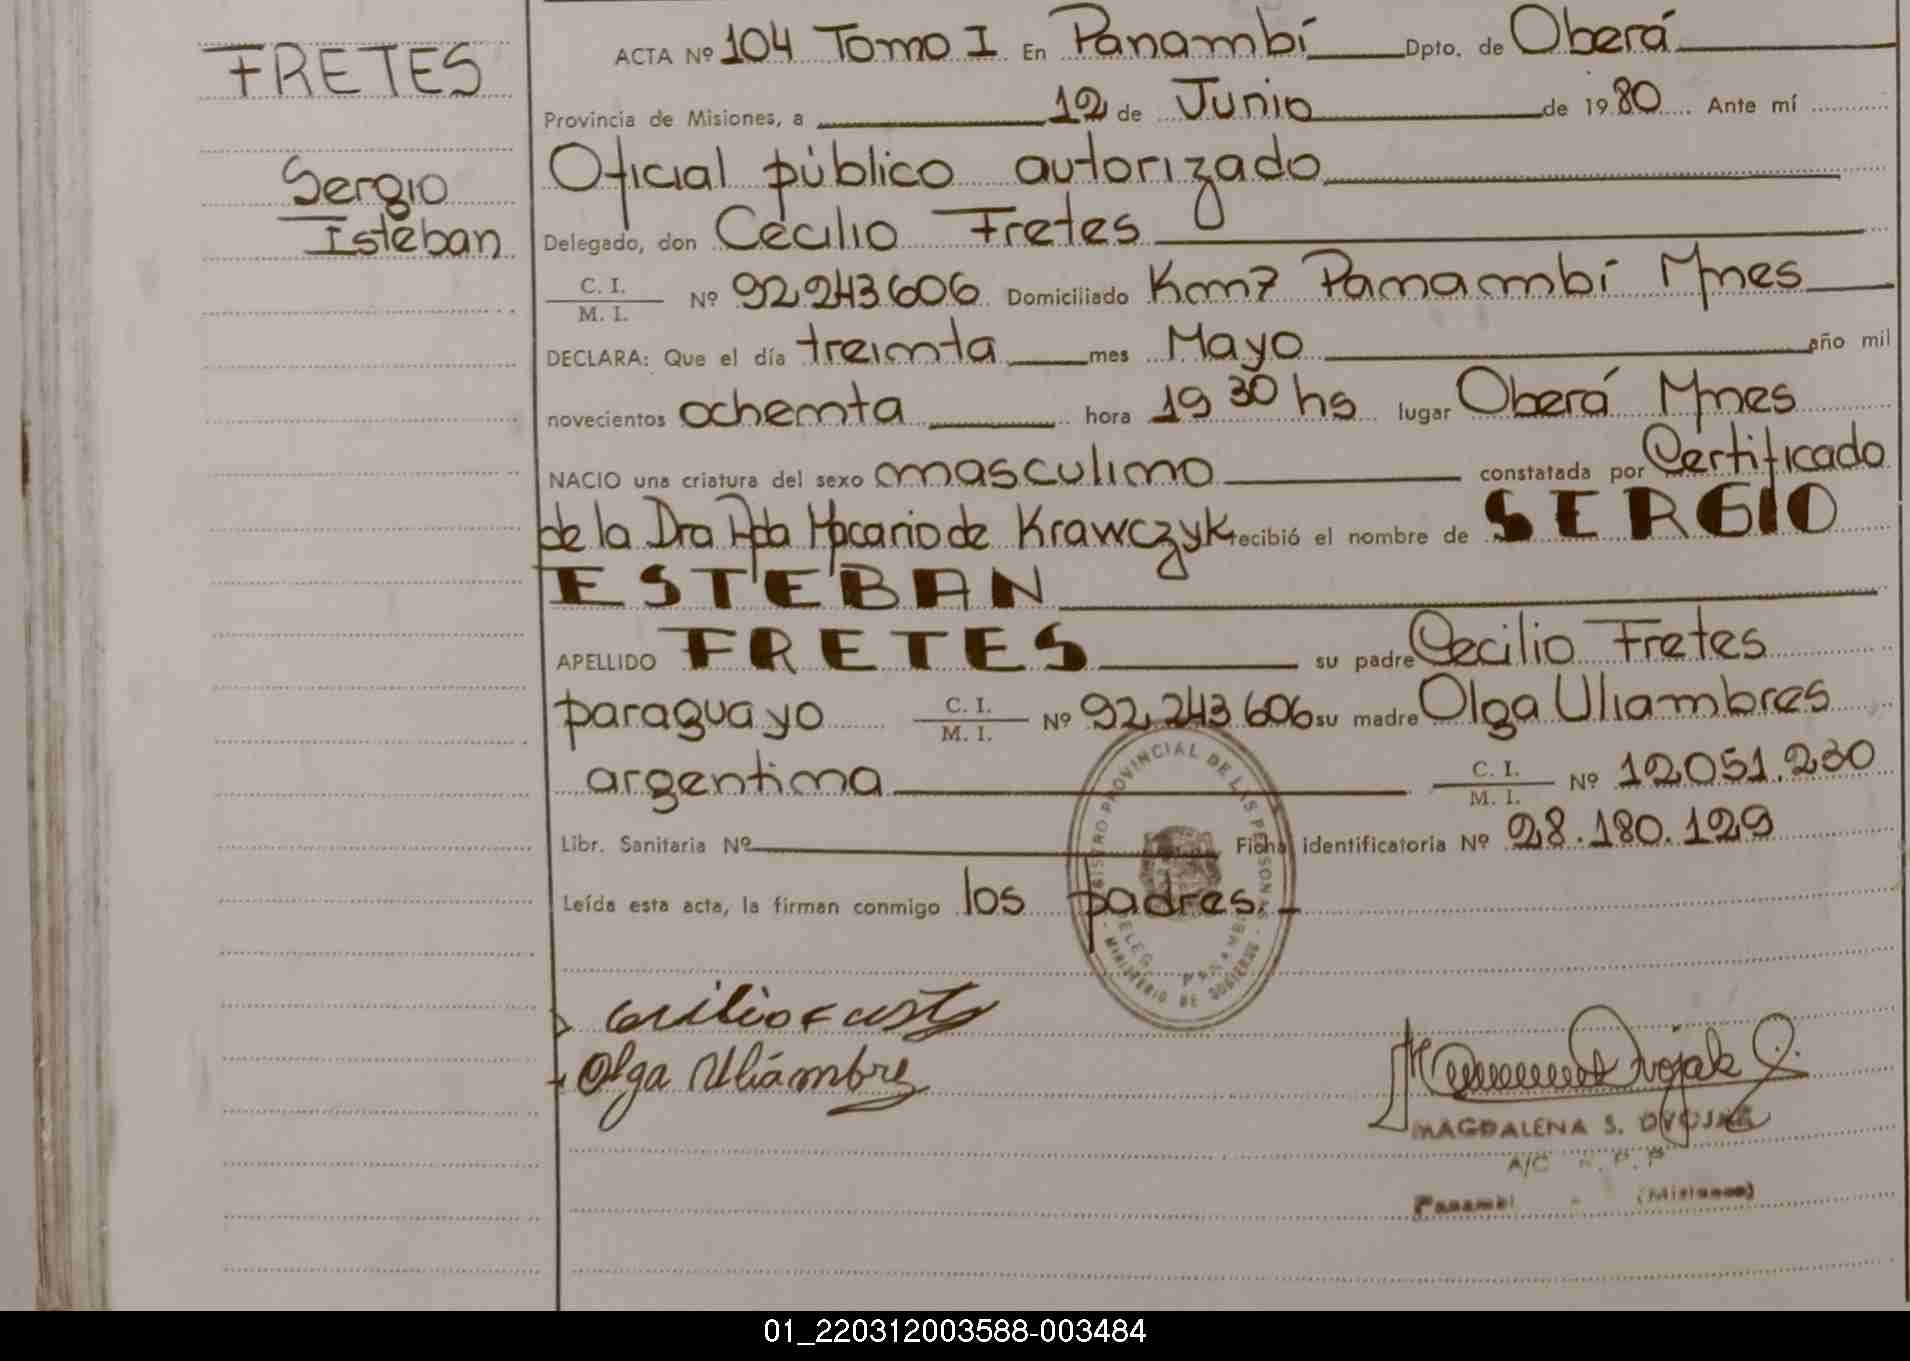 FRETES
Sergio
Esteban
ACTA Nº 104 Tomo I En Panambí Dpto. de Oberá
Provincia de Misiones, a 12 de Junio de 1980 Ante mí
Oficial público autorizado
Delegado, don Cecilio Fretes
C. I.
M. I.
Nº 92.243.606 Domiciliado Km7 Panambí Mnes
DECLARA: Que el día treinta mes Mayo año mil
novecientos ochenta hora 19 30 hs lugar Oberá Mnes
NACIO una criatura del sexo masculino constatada por Certificado
de la Dra Ada Macario de Krawczyk recibió el nombre de SERGIO
ESTEBAN
APELLIDO FRETES su padre Cecilio Fretes
paraguayo C. I. / M. I. Nº 92.243.606 su madre Olga Uliambres
argentina C. I. / M. I. Nº 12051.230
Libr. Sanitaria Nº Ficha identificatoria Nº 28.180.129
Leída esta acta, la firman conmigo los padres.
REGISTRO PROVINCIAL DE LAS PERSONAS
DELEG. PANAMBI
MINISTERIO DE GOBIERNO
Olga Uliambres
MAGDALENA S. DVOJAK
A/C
Panambi (Misiones)
01_220312003588-003484